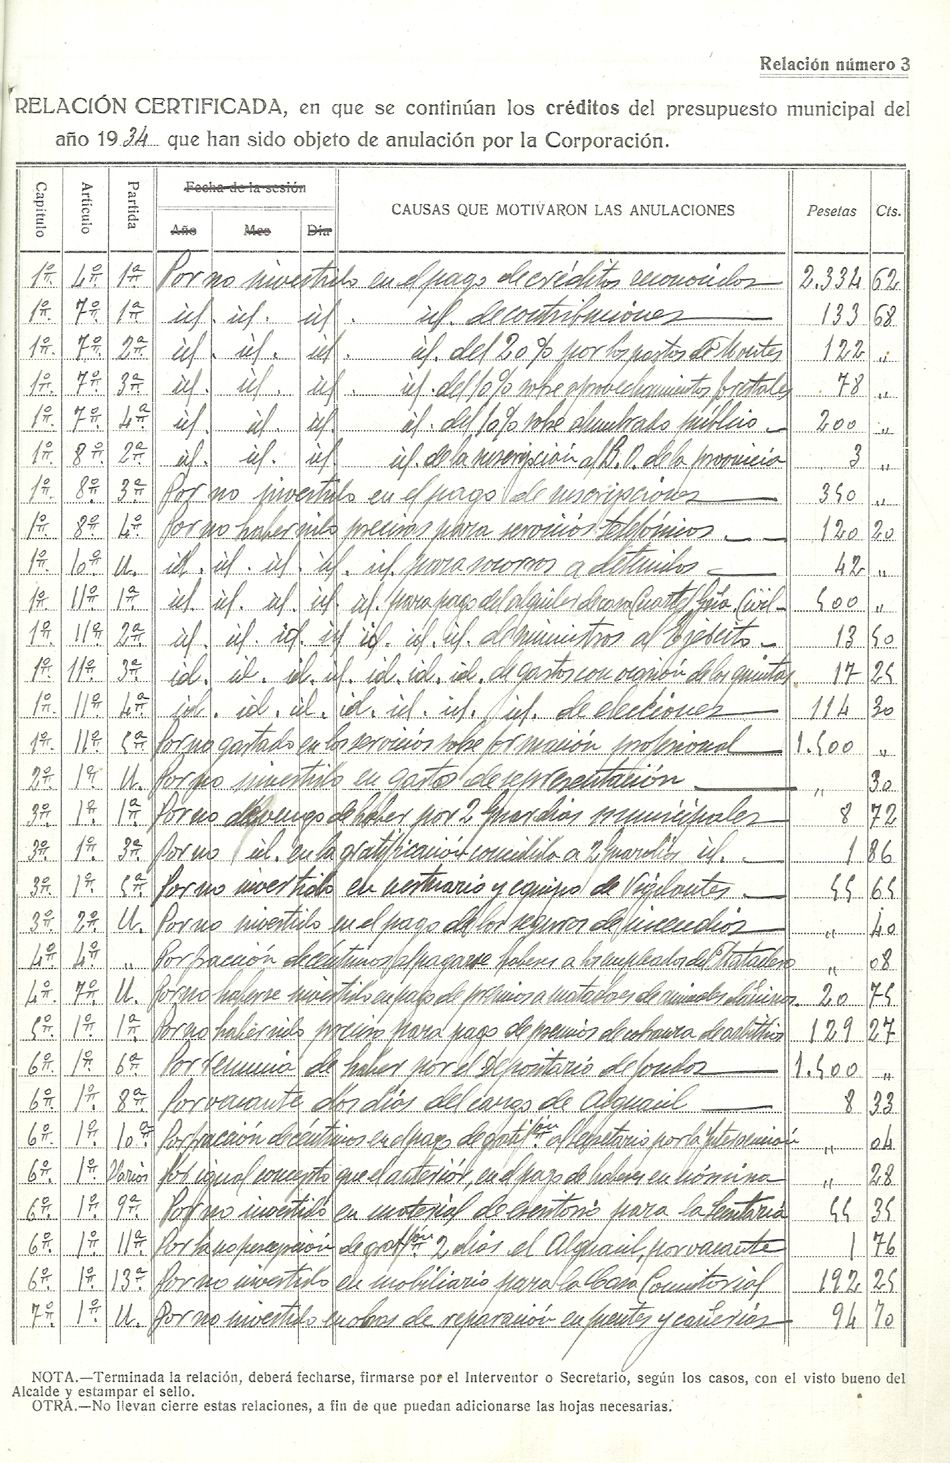 Relación número 3
RELACIÓN CERTIFICADA, en que se continúan los créditos del presupuesto municipal del
año 1934 que han sido objeto de anulación por la Corporación.
Capítulo Artículo Partida Fecha de la sesión Año Mes Día CAUSAS QUE MOTIVARON LAS ANULACIONES Pesetas Cts.
1º 4º 1ª Por no invertido en el pago de créditos reconocidos 2.334 62
1º 7º 1ª id. id. id. id. de contribuciones 133 68
1º 7º 2ª id. id. id. id. del 20% por los pastos de Montes 122 "
1º 7º 3ª id. id. id. id. del 10% sobre aprovechamientos forestales 78 "
1º 7º 4ª id. id. id. id. del 10% sobre alumbrado público 200 "
1º 8º 2ª id. id. id. id. de la suscripción al B.O. de la provincia 3 "
1º 8º 3ª Por no invertido en el pago de suscripciones 350 "
1º 8º 4º Por no haber sido precisas para servicios telefónicos 120 20
1º 10º U. id. id. id. id. id. para socorros a detenidos 42 "
1º 11º 1ª id. id. id. id. id. para pago del alquiler de casa Cuartel Gdia. Civil 500 "
1º 11º 2ª id. id. id. id. id. id. id. de suministros al Ejército 13 50
1º 11º 3ª id. id. id. id. id. id. id. de gastos con ocasión de las quintas 17 25
1º 11º 4ª id. id. id. id. id. id. id. de elecciones 114 30
1º 11º 5ª Por no gastado en los servicios sobre formación profesional 1.500 "
2º 1º U. Por no invertido en gastos de representación " 30
3º 1º 1ª Por no devengo de haber por 2 guardias municipales 8 72
3º 1º 3ª Por no id. en la gratificación concedida a 2 guardias id. 1 86
3º 1º 5ª Por no invertido en vestuario y equipo de Vigilantes 55 65
3º 2º U. Por no invertido en el pago de los seguros de incendios " 40
4º 4º " Por fracción de céntimos al pagarse haberes a los empleados del Matadero " 08
4º 7º U. Por no haberse invertido en pago de premios a matadores de animales dañinos 20 75
5º 1º 1ª Por no haber sido preciso para pago de premios de cobranza de arbitrios 129 27
6º 1º 6ª Por renuncia de haber por el Depositario de fondos 1.500 "
6º 1º 8ª Por vacante dos días del cargo de Alguacil 8 33
6º 1º 10ª Por fracción de céntimos en el pago de gratifon. al Secretario por la Intervención " 04
6º 1º Varios Por igual concepto que el anterior, en el pago de haberes en nómina " 28
6º 1º 9ª Por no invertido en material de escritorio para la Secretaria 55 35
6º 1º 11ª Por la no percepción de gratfon. 2 días el Alguacil, por vacante 1 76
6º 1º 13ª Por no invertido en mobiliario para la Casa Consistorial 192 25
7º 1º U. Por no invertido en obras de reparación en fuentes y cañerías 94 70
NOTA.—Terminada la relación, deberá fecharse, firmarse por el Interventor o Secretario, según los casos, con el visto bueno del
Alcalde y estampar el sello.
OTRA.—No llevan cierre estas relaciones, a fin de que puedan adicionarse las hojas necesarias.